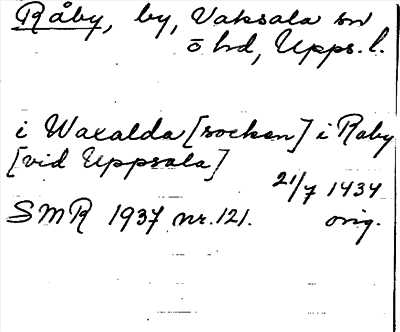 Råby, by, Vaksala sn
ö hd, Upps. l.
i Waxalda [socken] i Raby
[vid Uppsala]
21/7 1434
SMR 1937 nr. 121. orig.